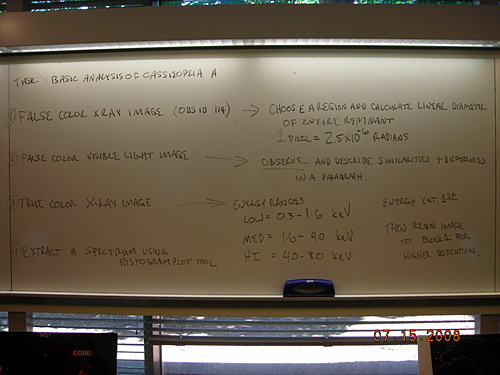 TASK: BASIC ANALYSIS OF CASSIOPEIA A
1) FALSE COLOR XRAY IMAGE (OBSID 114) → CHOOSE A REGION AND CALCULATE LINEAR DIAMETER
OF ENTIRE REMNANT
1 PIXEL = 2.5x10⁻⁶ RADIANS
2) FALSE COLOR VISIBLE LIGHT IMAGE → OBSERVE AND DESCRIBE SIMILARITIES + DIFFERENCES
IN A PARAGRAPH.
3) TRUE COLOR X-RAY IMAGE → ENERGY RANGES
LOW = 0.3-1.6 keV
MED = 1.6-4.0 keV
HI = 4.0-8.0 keV
ENERGY CUT 1ST
THEN REBIN IMAGE
TO BLOCK 1 FOR
HIGHER RESOLUTION.
4) EXTRACT A SPECTRUM USING
HISTOGRAM PLOT TOOL
CODE
07.15.2008